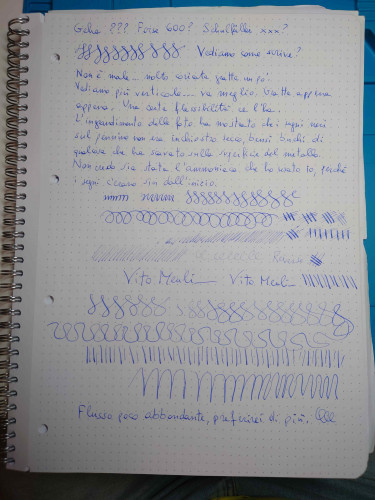 Geha ??? Forse 600? Schulfüller xxx?
Vediamo come scrive?
Non è male... molto caricata gratta un po'.
Vediamo più verticale... va meglio. Gratta appena
appena. Una certa flessibilità ce l'ha.
L'ingrandimento della foto ha mostrato che i segni neri
sul pennino non era inchiostro secco, bensì buchi di
qualcosa che ha scavato sulla superficie del metallo.
Non credo sia stata l'ammoniaca che ho usato io, perché
i segni c'erano sin dall'inizio.
Rovescio
Vito Meali Vito Meali
Flusso poco abbondante, preferirei di più.